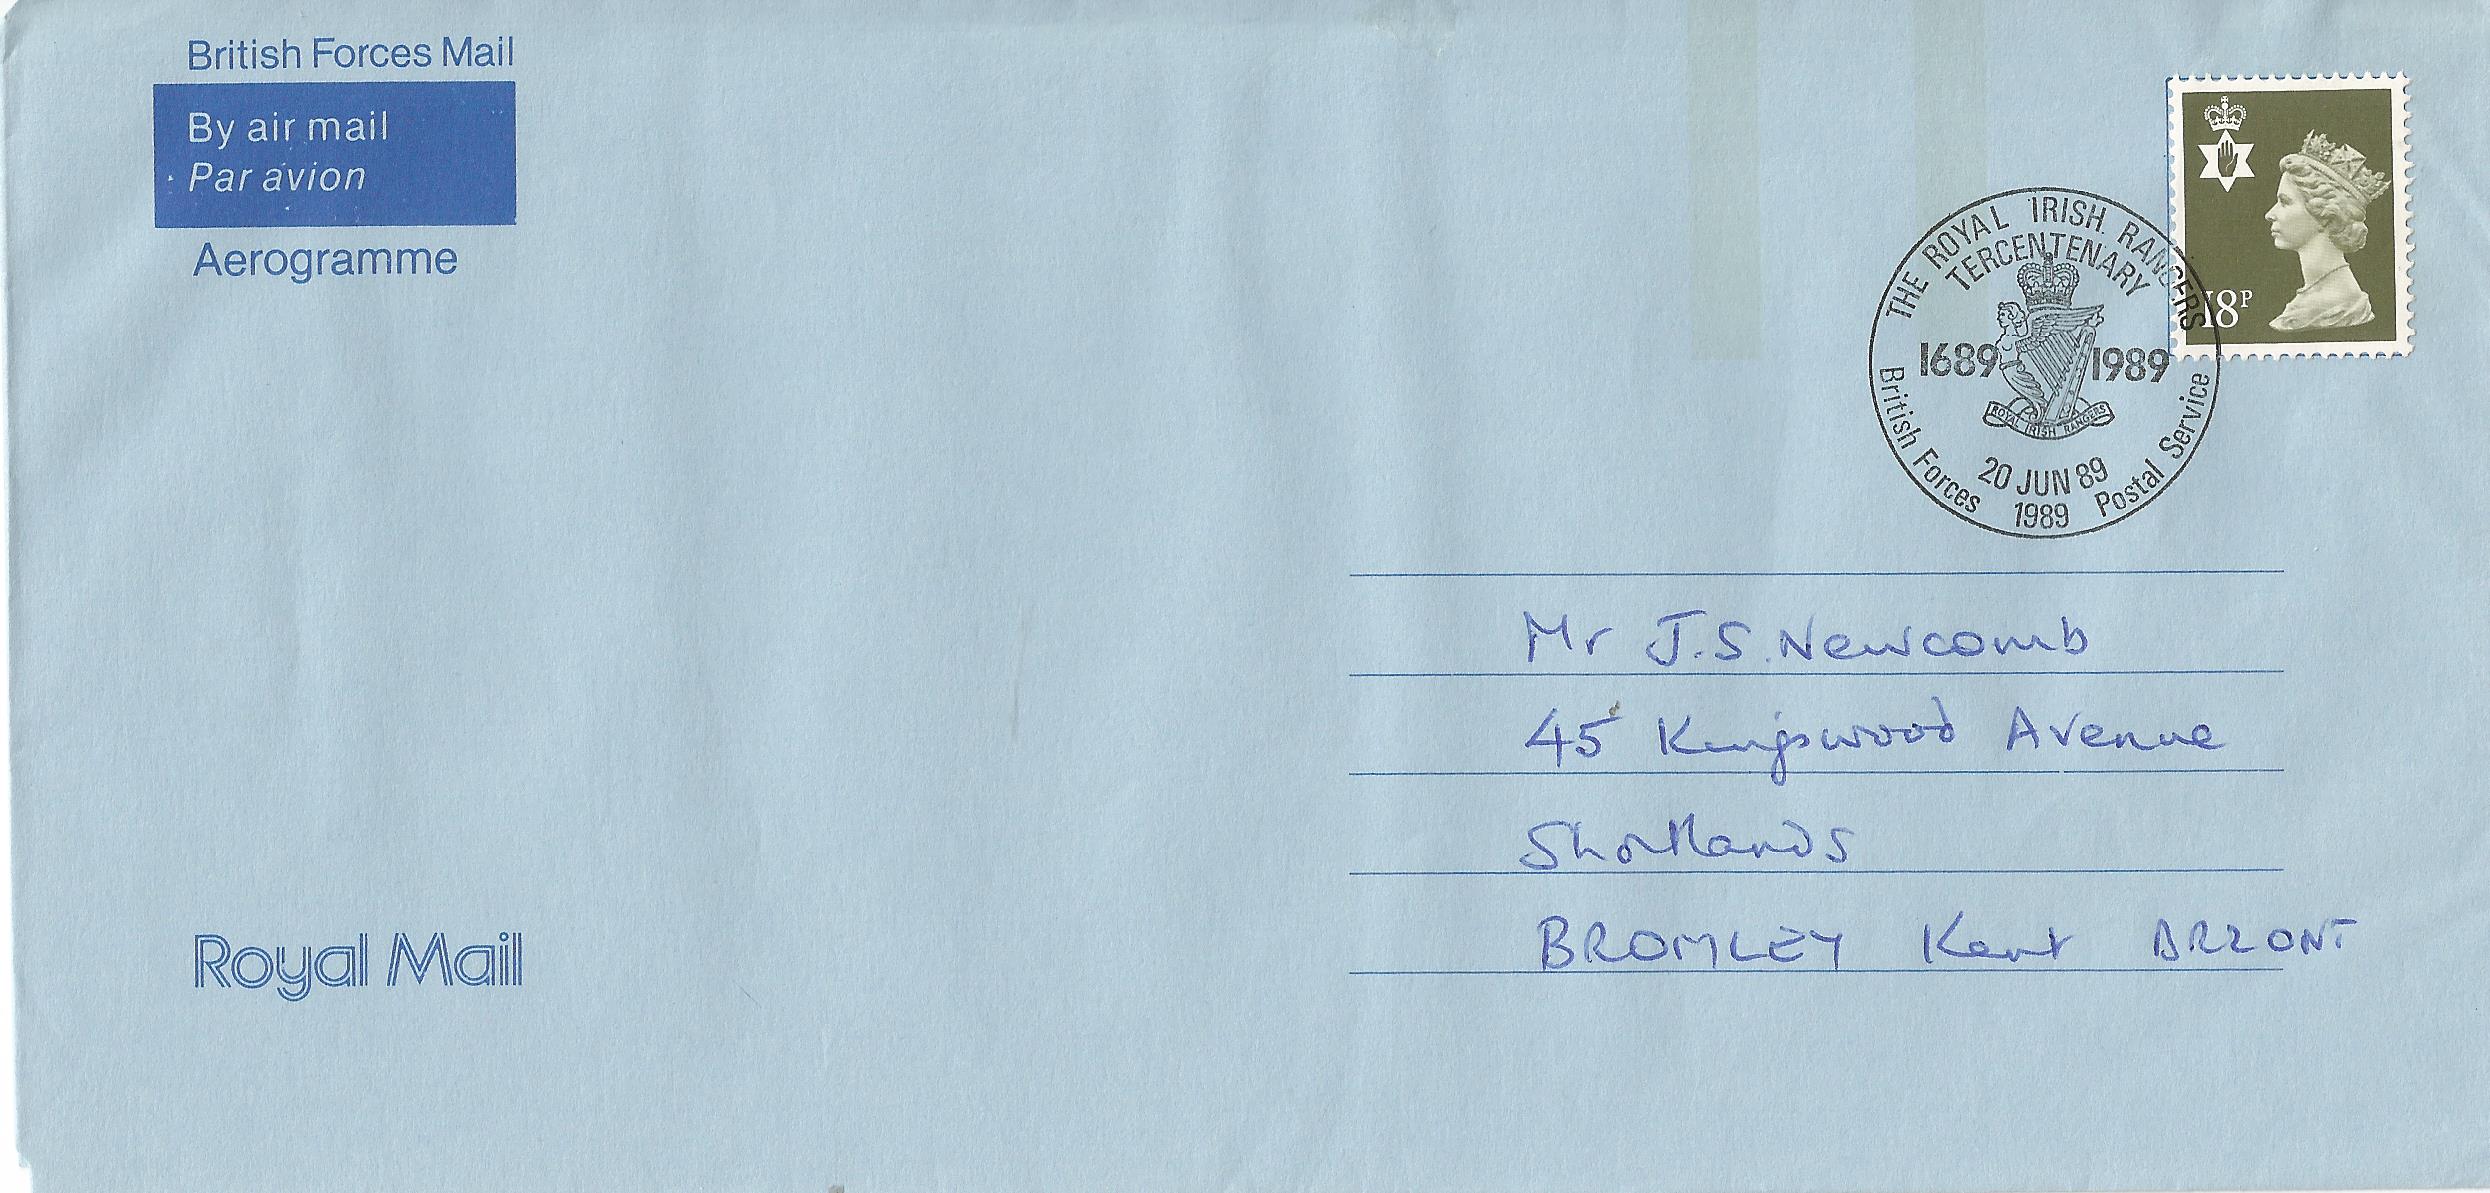 British Forces Mail
By air mail
Par avion
Aerogramme
18P
THE ROYAL IRISH RANGERS
TERCENTENARY
1689 1989
ROYAL IRISH RANGERS
20 JUN 89
1989
British Forces Postal Service
Mr J.S. Newcomb
45 Kingswood Avenue
Shortlands
BROMLEY Kent BR2 0NT
Royal Mail